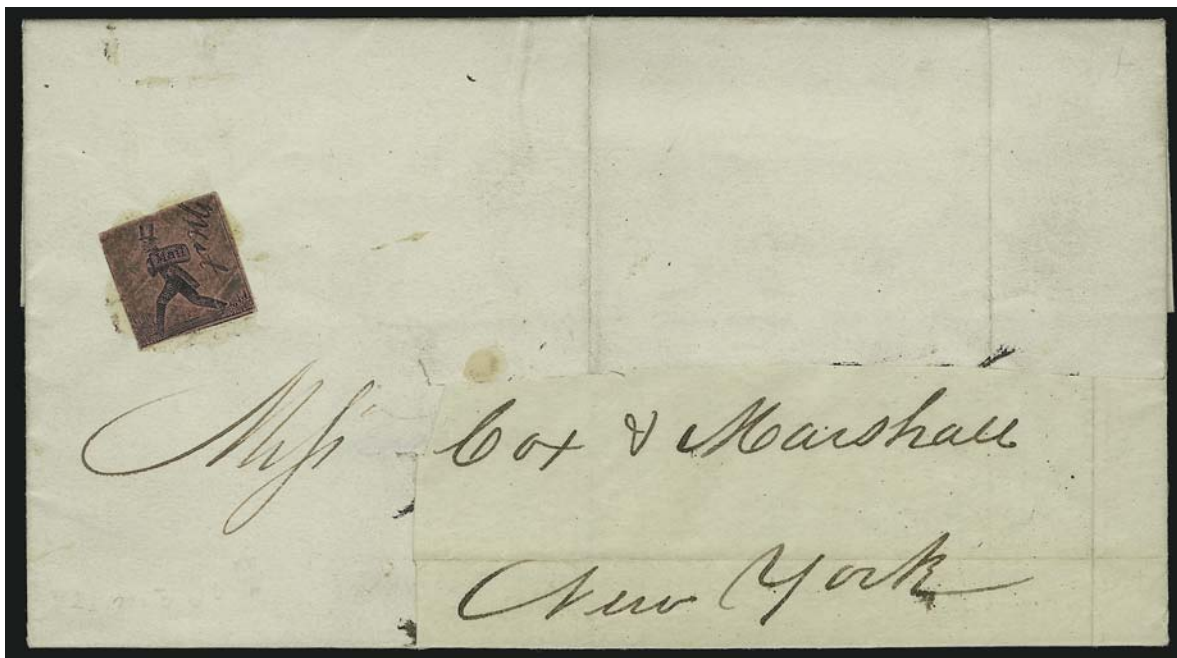 Mail
Messrs Cox & Marshall
New York